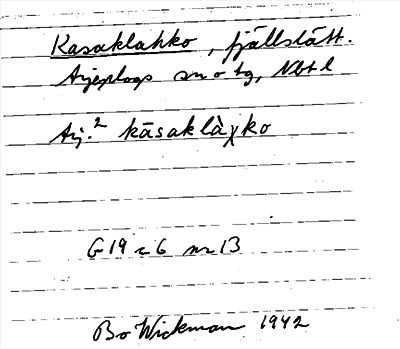 Kasaklahko, fjällslått.
Arjeplogs sn o tg, Nbt l
Arj.² kāsaklàχko
G 19 c 6 nr 13
Bo Wickman 1942